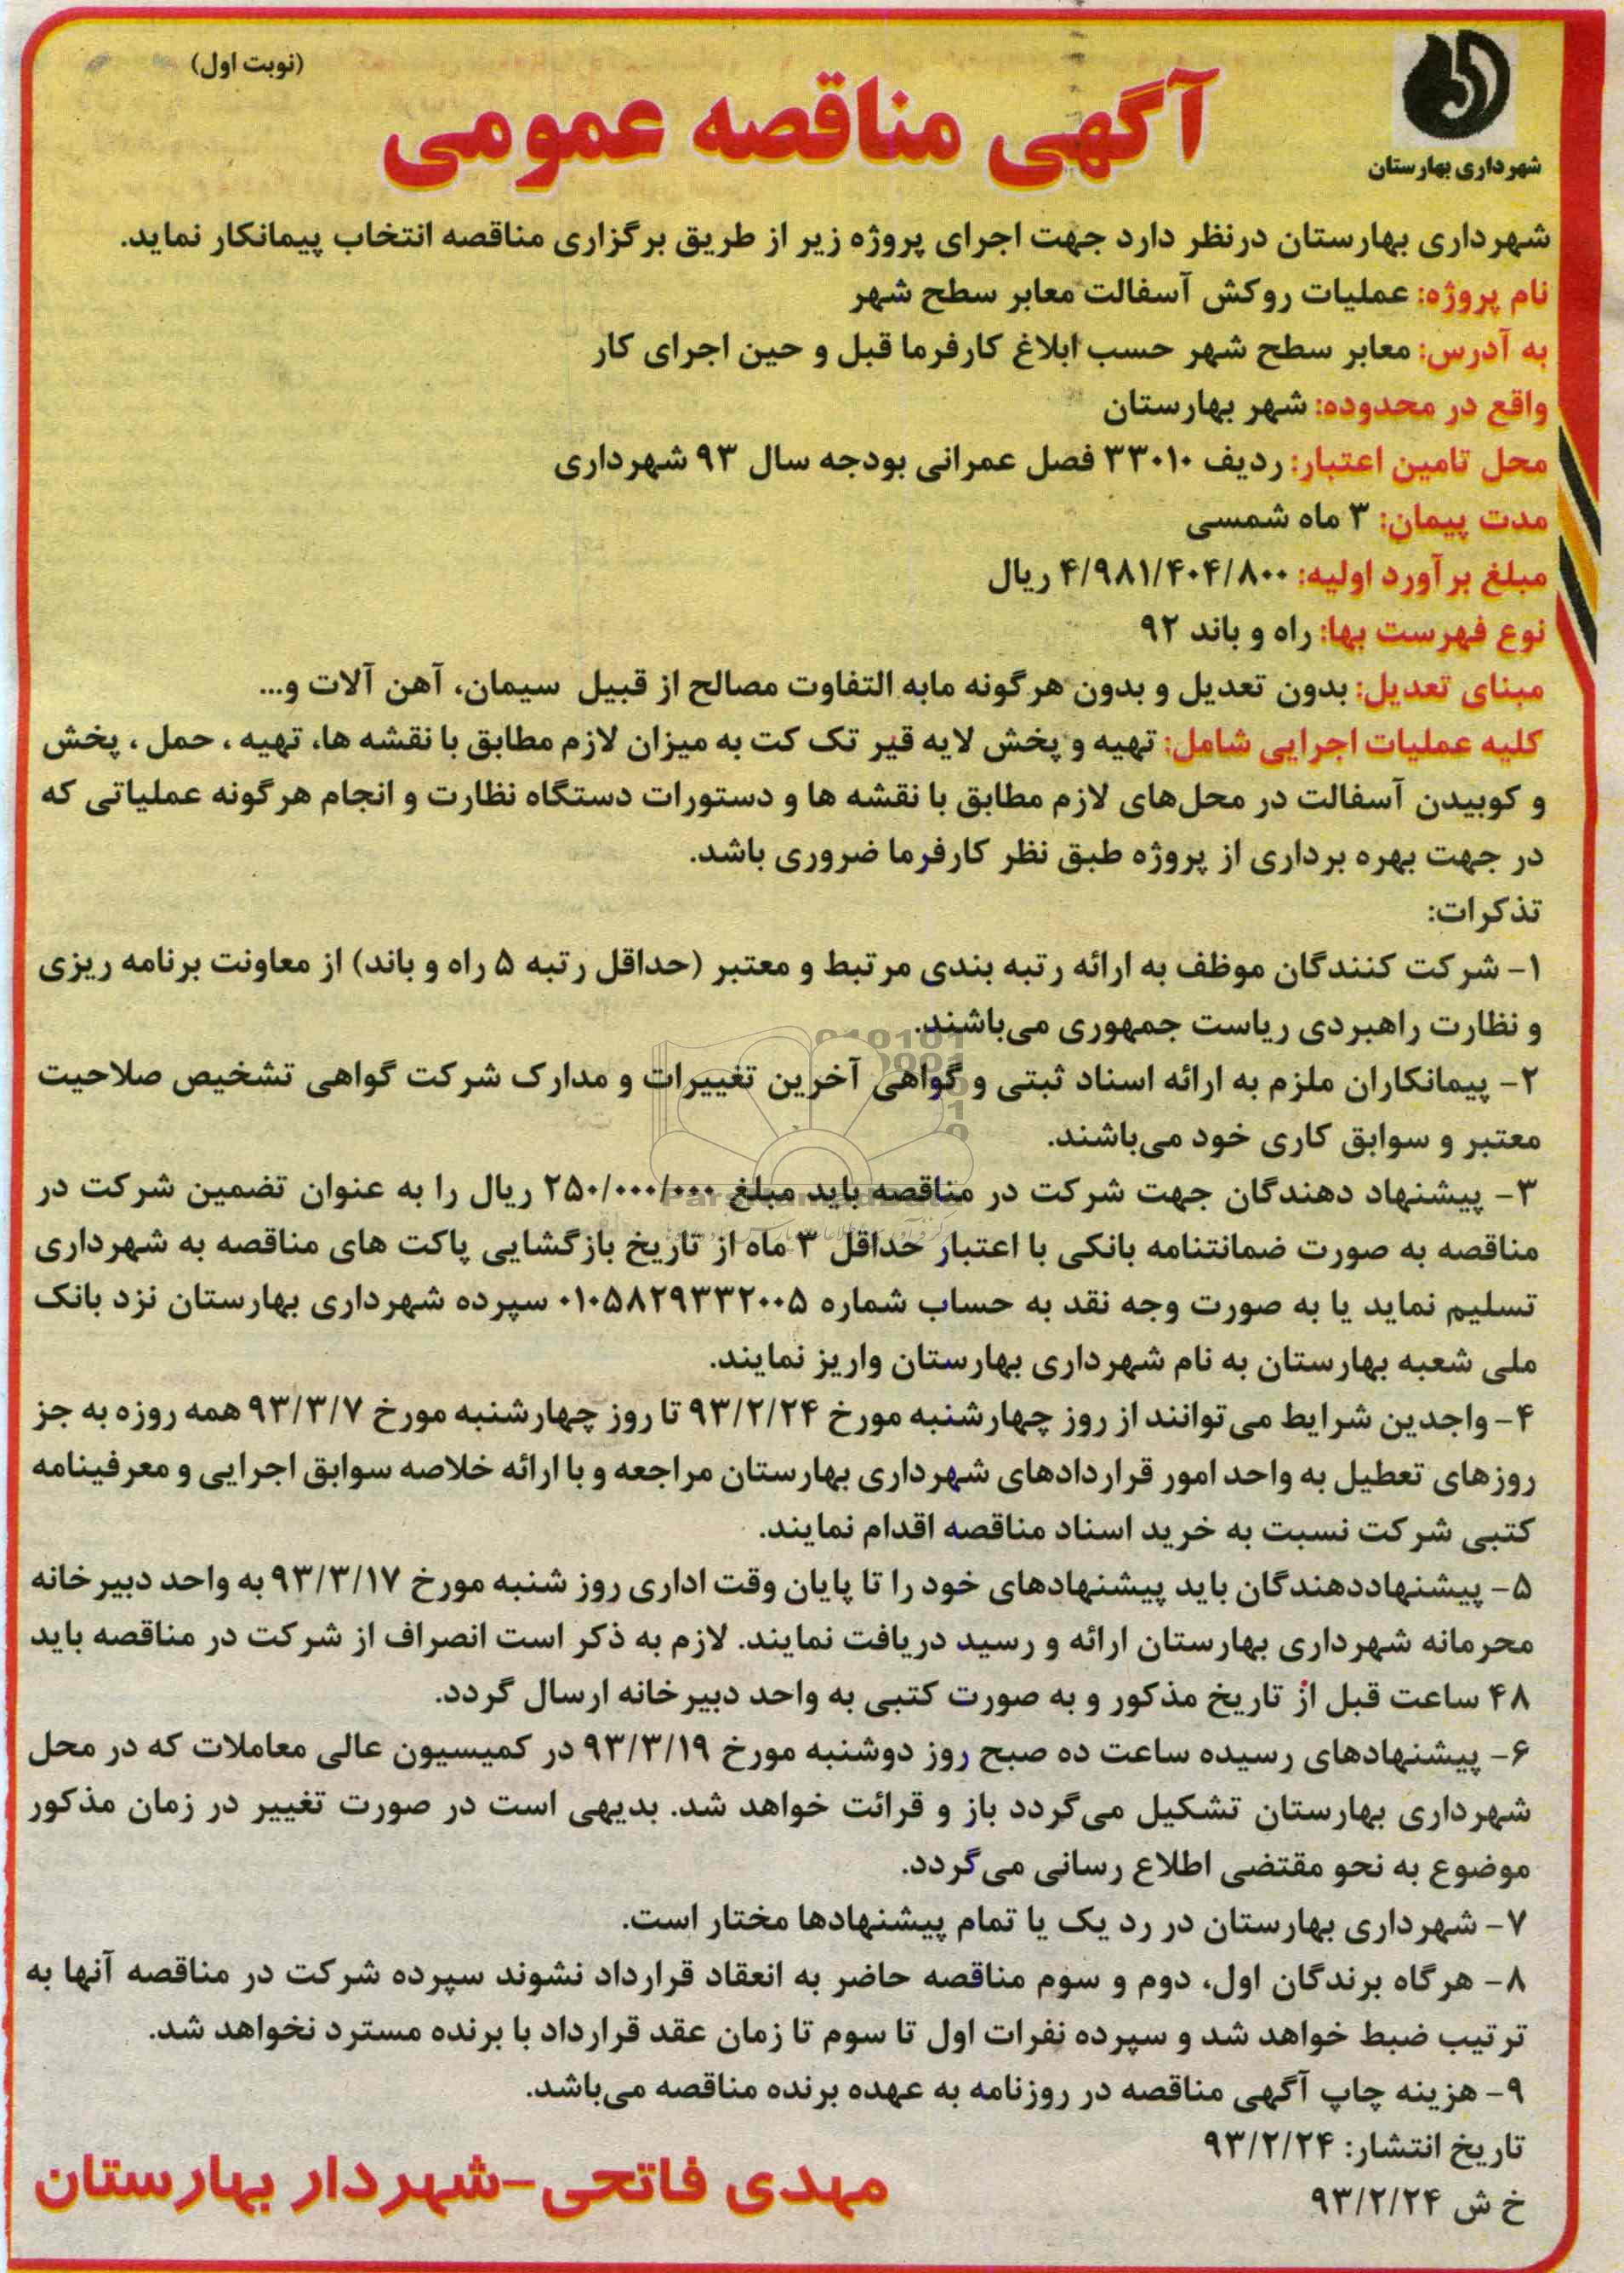 (نوبت اول)
شهرداری بهارستان
آگهی مناقصه عمومی
شهرداری بهارستان درنظر دارد جهت اجرای پروژه زیر از طریق برگزاری مناقصه انتخاب پیمانکار نماید.
نام پروژه: عملیات روکش آسفالت معابر سطح شهر
به آدرس: معابر سطح شهر حسب ابلاغ کارفرما قبل و حین اجرای کار
واقع در محدوده: شهر بهارستان
محل تامین اعتبار: ردیف ۳۳۰۱۰ فصل عمرانی بودجه سال ۹۳ شهرداری
مدت پیمان: ۳ ماه شمسی
مبلغ برآورد اولیه: ۴/۹۸۱/۴۰۴/۸۰۰ ریال
نوع فهرست بها: راه و باند ۹۲
مبنای تعدیل: بدون تعدیل و بدون هرگونه مابه التفاوت مصالح از قبیل سیمان، آهن آلات و...
کلیه عملیات اجرایی شامل: تهیه و پخش لایه قیر تک کت به میزان لازم مطابق با نقشه ها، تهیه ، حمل ، پخش
و کوبیدن آسفالت در محل‌های لازم مطابق با نقشه ها و دستورات دستگاه نظارت و انجام هرگونه عملیاتی که
در جهت بهره برداری از پروژه طبق نظر کارفرما ضروری باشد.
تذکرات:
۱- شرکت کنندگان موظف به ارائه رتبه بندی مرتبط و معتبر (حداقل رتبه ۵ راه و باند) از معاونت برنامه ریزی
و نظارت راهبردی ریاست جمهوری می‌باشند.
۲- پیمانکاران ملزم به ارائه اسناد ثبتی و گواهی آخرین تغییرات و مدارک شرکت گواهی تشخیص صلاحیت
معتبر و سوابق کاری خود می‌باشند.
۳- پیشنهاد دهندگان جهت شرکت در مناقصه باید مبلغ ۲۵۰/۰۰۰/۰۰۰ ریال را به عنوان تضمین شرکت در
مناقصه به صورت ضمانتنامه بانکی با اعتبار حداقل ۳ ماه از تاریخ بازگشایی پاکت های مناقصه به شهرداری
تسلیم نماید یا به صورت وجه نقد به حساب شماره ۰۱۰۵۸۲۹۳۳۲۰۰۵ سپرده شهرداری بهارستان نزد بانک
ملی شعبه بهارستان به نام شهرداری بهارستان واریز نمایند.
۴- واجدین شرایط می‌توانند از روز چهارشنبه مورخ ۹۳/۲/۲۴ تا روز چهارشنبه مورخ ۹۳/۳/۷ همه روزه به جز
روزهای تعطیل به واحد امور قراردادهای شهرداری بهارستان مراجعه و با ارائه خلاصه سوابق اجرایی و معرفینامه
کتبی شرکت نسبت به خرید اسناد مناقصه اقدام نمایند.
۵- پیشنهاددهندگان باید پیشنهادهای خود را تا پایان وقت اداری روز شنبه مورخ ۹۳/۳/۱۷ به واحد دبیرخانه
محرمانه شهرداری بهارستان ارائه و رسید دریافت نمایند. لازم به ذکر است انصراف از شرکت در مناقصه باید
۴۸ ساعت قبل از تاریخ مذکور و به صورت کتبی به واحد دبیرخانه ارسال گردد.
۶- پیشنهادهای رسیده ساعت ده صبح روز دوشنبه مورخ ۹۳/۳/۱۹ در کمیسیون عالی معاملات که در محل
شهرداری بهارستان تشکیل می‌گردد باز و قرائت خواهد شد. بدیهی است در صورت تغییر در زمان مذکور
موضوع به نحو مقتضی اطلاع رسانی می‌گردد.
۷- شهرداری بهارستان در رد یک یا تمام پیشنهادها مختار است.
۸- هرگاه برندگان اول، دوم و سوم مناقصه حاضر به انعقاد قرارداد نشوند سپرده شرکت در مناقصه آنها به
ترتیب ضبط خواهد شد و سپرده نفرات اول تا سوم تا زمان عقد قرارداد با برنده مسترد نخواهد شد.
۹- هزینه چاپ آگهی مناقصه در روزنامه به عهده برنده مناقصه می‌باشد.
تاریخ انتشار: ۹۳/۲/۲۴
خ ش ۹۳/۲/۲۴
مهدی فاتحی-شهردار بهارستان